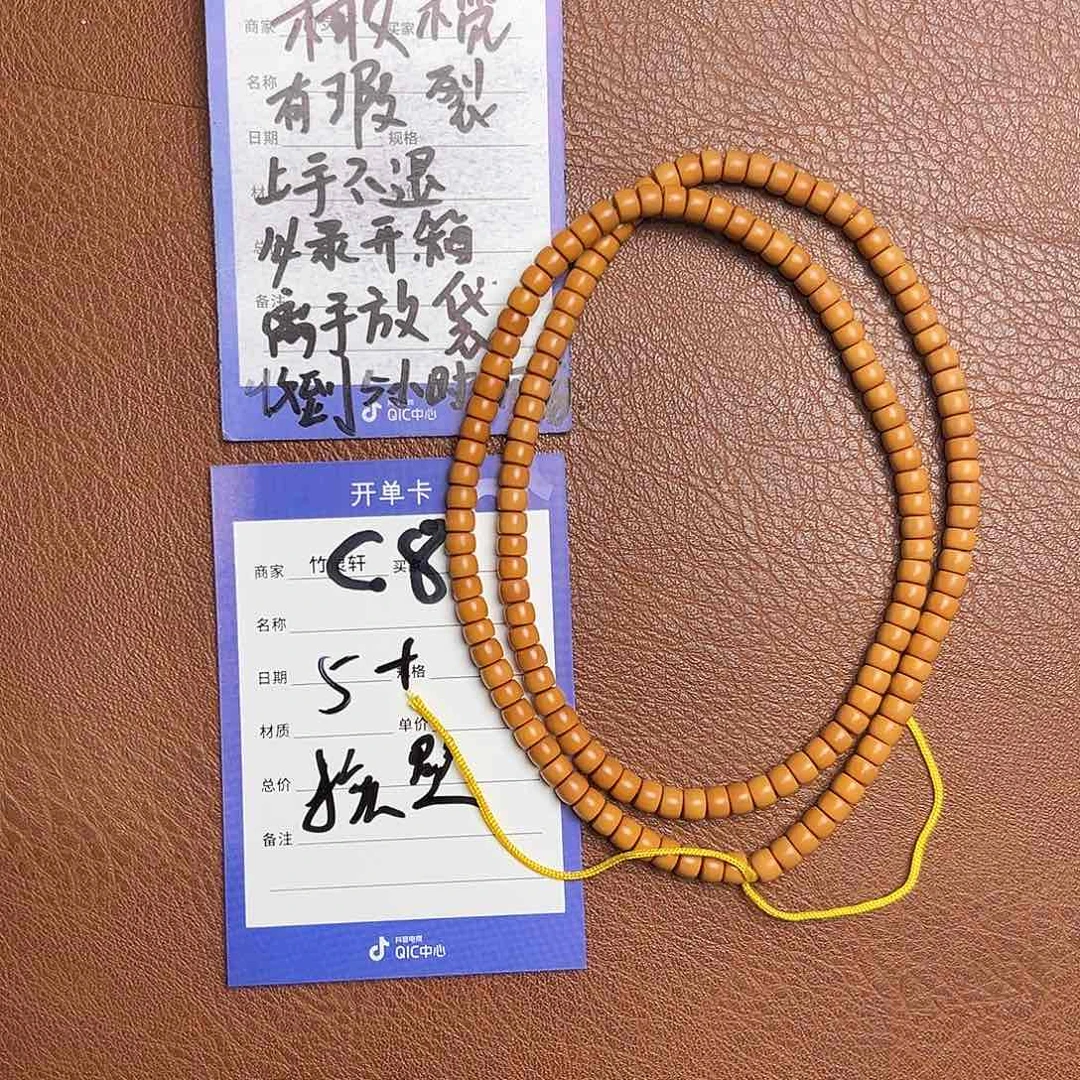 商家 买家
橄榄
名称
有瑕裂
日期 规格
上手不退
必录开箱
备注
离手放袋
收到 小时
QIC中心
开单卡
商家 竹 轩
C8
名称
日期 规格
5+
材质 单价
总价
备注
抖音电商
QIC中心